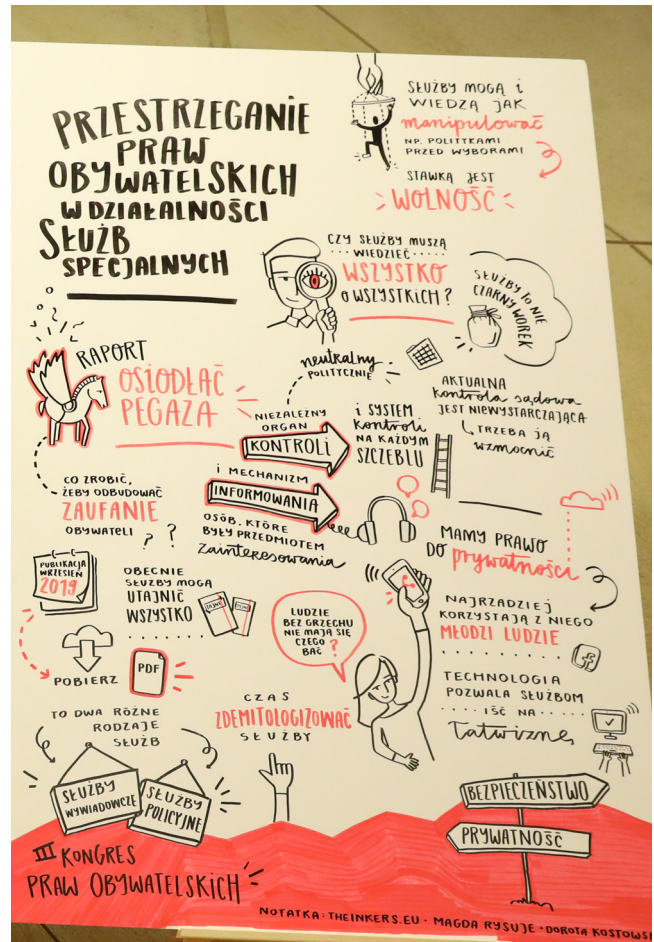 PRZESTRZEGANIE
PRAW
OBYWATELSKICH
W DZIAŁALNOŚCI
SŁUŻB
SPECJALNYCH
SŁUŻBY MOGĄ I
WIEDZĄ JAK
manipulować
NP. POLITYKAMI
PRZED WYBORAMI
STAWKĄ JEST
WOLNOŚĆ
CZY SŁUŻBY MUSZĄ
WIEDZIEĆ
WSZYSTKO
O WSZYSTKICH?
SŁUŻBY TO NIE
CZARNY WOREK
RAPORT
OSIODŁAĆ
PEGAZA
neutralny
POLITYCZNIE
NIEZALEŻNY
ORGAN
KONTROLI
I SYSTEM
kontroli
NA KAŻDYM
SZCZEBLU
AKTUALNA
kontrola sądowa
JEST NIEWYSTARCZAJĄCA
TRZEBA JĄ
wzmocnić
I MECHANIZM
INFORMOWANIA
OSÓB, KTÓRE
BYŁY PRZEDMIOTEM
zainteresowania
CO ZROBIĆ,
ŻEBY ODBUDOWAĆ
ZAUFANIE
OBYWATELI ? ?
MAMY PRAWO
DO prywatności
PUBLIKACJA
WRZESIEŃ
2019
POBIERZ
PDF
OBECNIE
SŁUŻBY MOGĄ
UTAJNIĆ
WSZYSTKO
TAJNE
LUDZIE
BEZ GRZECHU
NIE MAJĄ SIĘ
CZEGO
BAĆ ?
NAJRZADZIEJ
KORZYSTAJĄ Z NIEGO
MŁODZI LUDZIE
f
TECHNOLOGIA
POZWALA SŁUŻBOM
IŚĆ NA
łatwiznę
TO DWA RÓŻNE
RODZAJE
SŁUŻB
SŁUŻBY
WYWIADOWCZE
SŁUŻBY
POLICYJNE
CZAS
ZDEMITOLOGIZOWAĆ
SŁUŻBY
BEZPIECZEŃSTWO
PRYWATNOŚĆ
III KONGRES
PRAW OBYWATELSKICH
NOTATKA: THEINKERS.EU · MAGDA RYSUJE · DOROTA